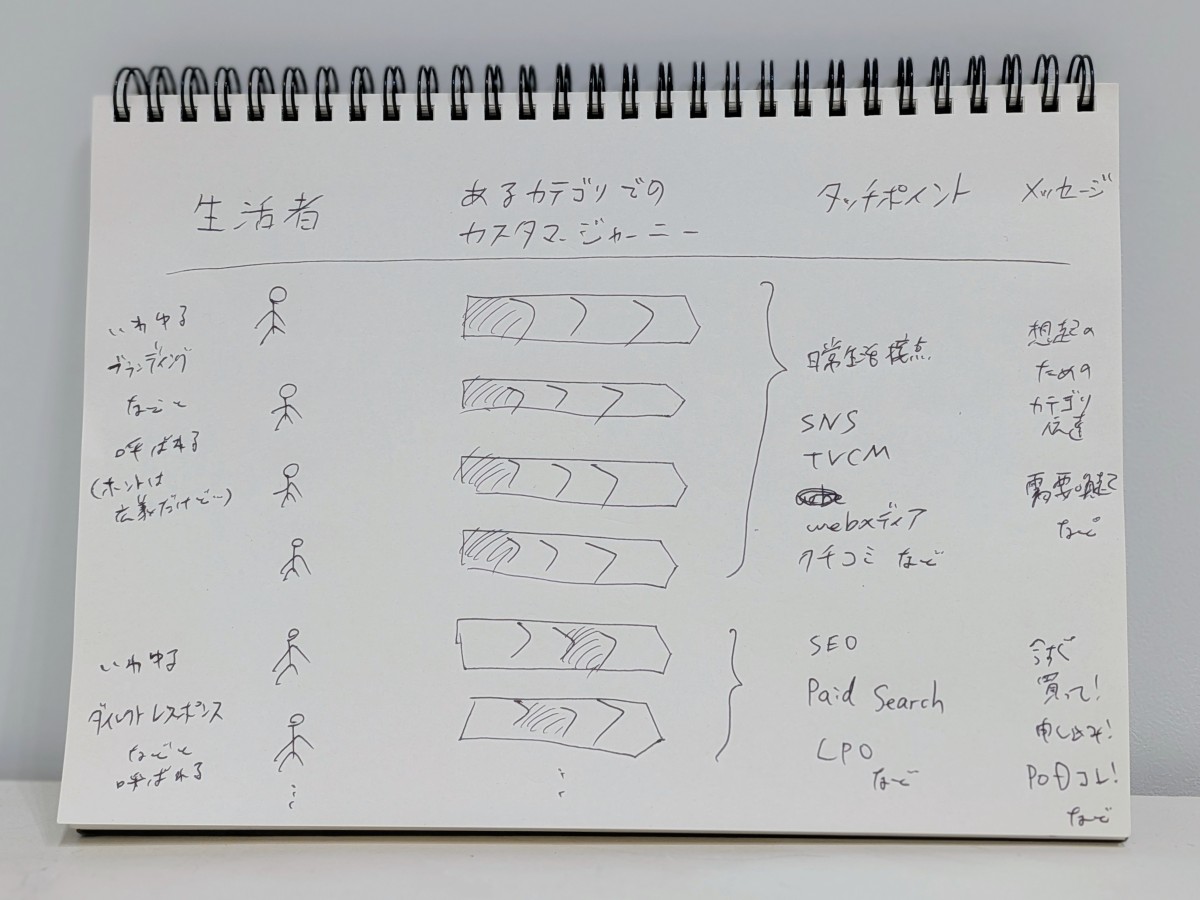 生活者
あるカテゴリでの
カスタマージャーニー
タッチポイント
メッセージ
いわゆる
ブランディング
などと
呼ばれる
(ホントは
広義だけど…)
日常生活接点
SNS
TVCM
webメディア
クチコミ など
想起の
ための
カテゴリ
伝達
需要喚起
など
いわゆる
ダイレクトレスポンス
などと
呼ばれる
SEO
Paid Search
LPO
など
今すぐ
買って!
申し込み!
コレ!
など